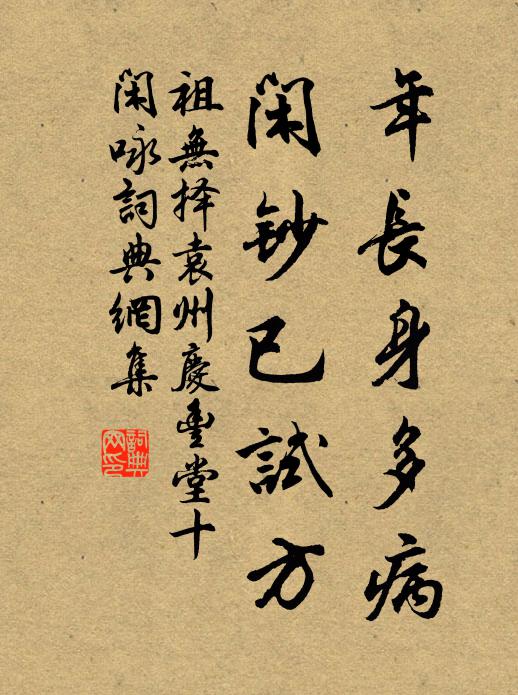 年長身多病
閑鈔已試方
祖無择袁州慶豐堂十
閑咏詞典網集
詞典網印